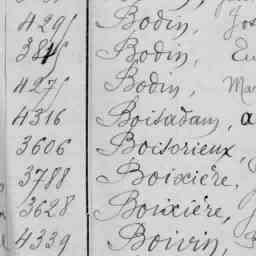 4295 Bodin,
3815 Bodin,
4275 Bodin, Mar
4316 Boisadam,
3606 Boisorieux,
3788 Boixière,
3628 Bouxière,
4339 Boivin,